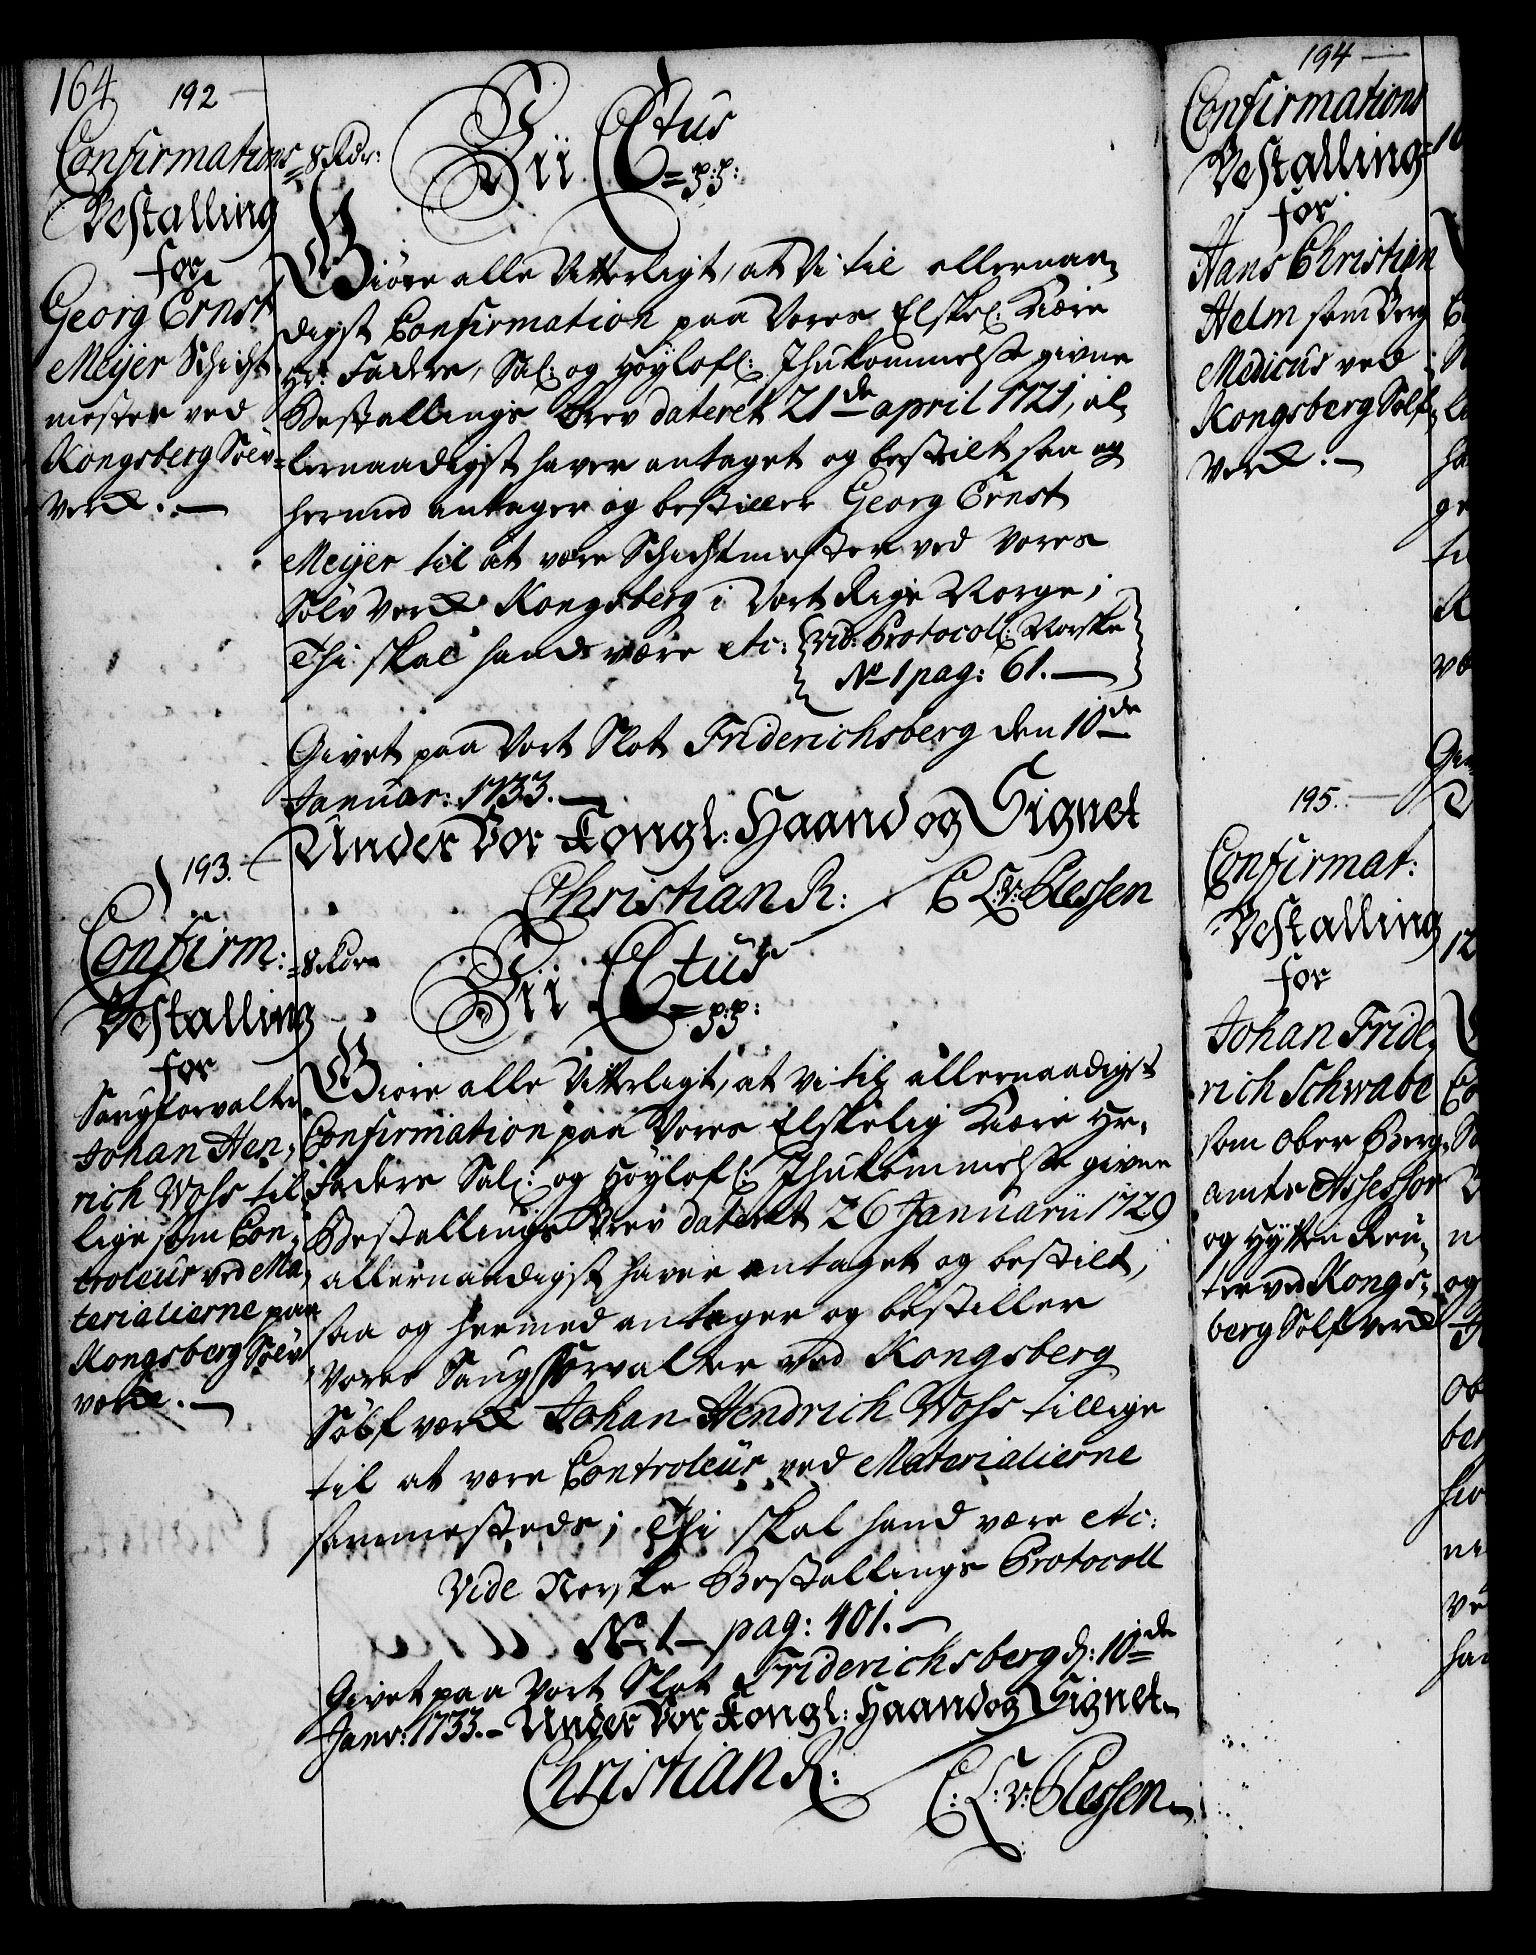 164
192
Confirmations
Bestalling
for
Georg Ernst
Meyer Schicht
mester ved
Kongsberg Sølv-
Verck. —
= 8 Rdr:
Vii CStus
= p:p:
Giøre alle Vitterligt, at Vi til allernaa-
digst Confirmation paa Vores Elskel: Kiære
Hr: Faders, Sal: og Høylofl: Ihukommelse givne
Bestallings Brev dateret 21de april 1721, al-
lernaadigst haver antaget og bestilt saa og
hermed antager og bestiller Georg Ernst
Meyer til at være Schichtmester ved Vores
Sølv Verck Kongsberg i Vort Rige Norge;
Thi skal hand være etc: vid: Protocoll: Norske
No 1 pag: 61. —
Givet paa Vort Slot Friderichsberg den 10de
Januar: 1733. —
Under Vor Kongl: Haand og Signet
Christian R: / C A v: Plessen
193. —
Confirm:
Bestalling
for
Saugforvalter
Johan Hen-
rich Wohs til
lige som Con-
troleur ved Ma-
terialierne paa
Kongsberg Sølv
verck. —
= 8 Rdr
Vii CStus
= p:p:
Giøre alle Vitterligt, at Vi til allernaadigst
Confirmation paa Vores Elskelig Kiære Hr.
Faders Sal: og Høylofl: Ihukommelse givne
Bestallings Brev dateret 26 Januarii 1729
allernaadigst haver antaget og bestilt,
saa og hermed antager og bestiller
Vores Saugforvalter ved Kongsberg
Sølf verck Johan Hendrich Wohs tillige
til at være Controleur ved Materialierne
sammesteds; Thi skal hand være etc:
Vide Norske Bestallings Protocoll
No 1 — pag: 401. —
Givet paa Vort Slot Friderichsberg d: 10de
Janv: 1733. — Under Vor Kongl: Haand og Signet
Christian R: / C: A: v: Plessen
194 —
Confirmations
Bestalling
for
Hans Christian
Helm som Berg
Medicus ved
Kongsberg Sølf-
Verck. —
195. —
Confirmat:
Bestalling
for
Johan Fride-
rich Schwabe
som Ober Berg-
amts Assessor
og Hytte Reu-
ter ved Kongs-
berg Sølf verck